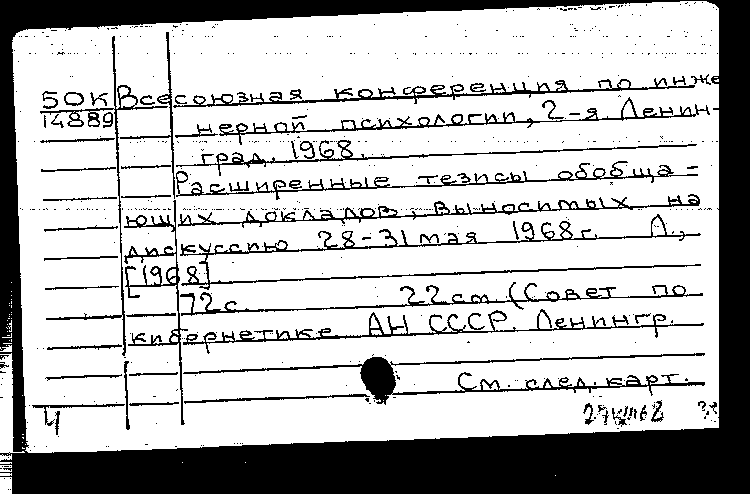 50К Всесоюзная конференция по инже
14889 нерной психологии, 2-я. Ленин-
град. 1968.
Расширенные тезисы обобща=
ющих докладов, выносимых на
дискуссию 28-31 мая 1968г. Л.,
[1968]
72с. 22cm (Совет по
кибернетике АН СССР. Ленингр.
См. след. карт.
Ч